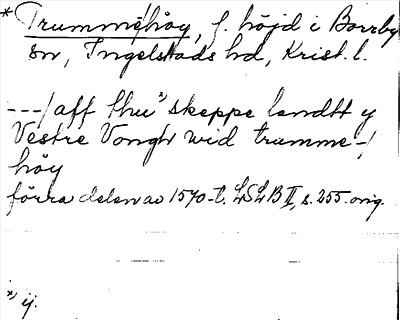 *Trumme/høy, f. höjd i Borrby
sn, Ingelstads hd, Krist. l.
---/aff thu x) skeppe landtt y
Vestre Vongh wid trumme-/
høy
förra delen av 1570-t. LSLB II, s. 255. orig.
x) ij.